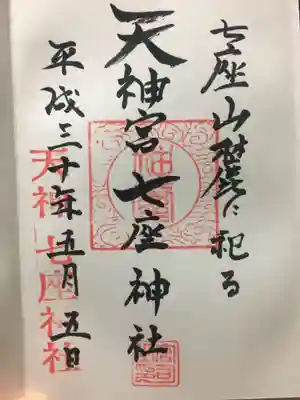 七座山麓に祀る
天神宮七座神社
平成三十年五月五日
天神七座神社